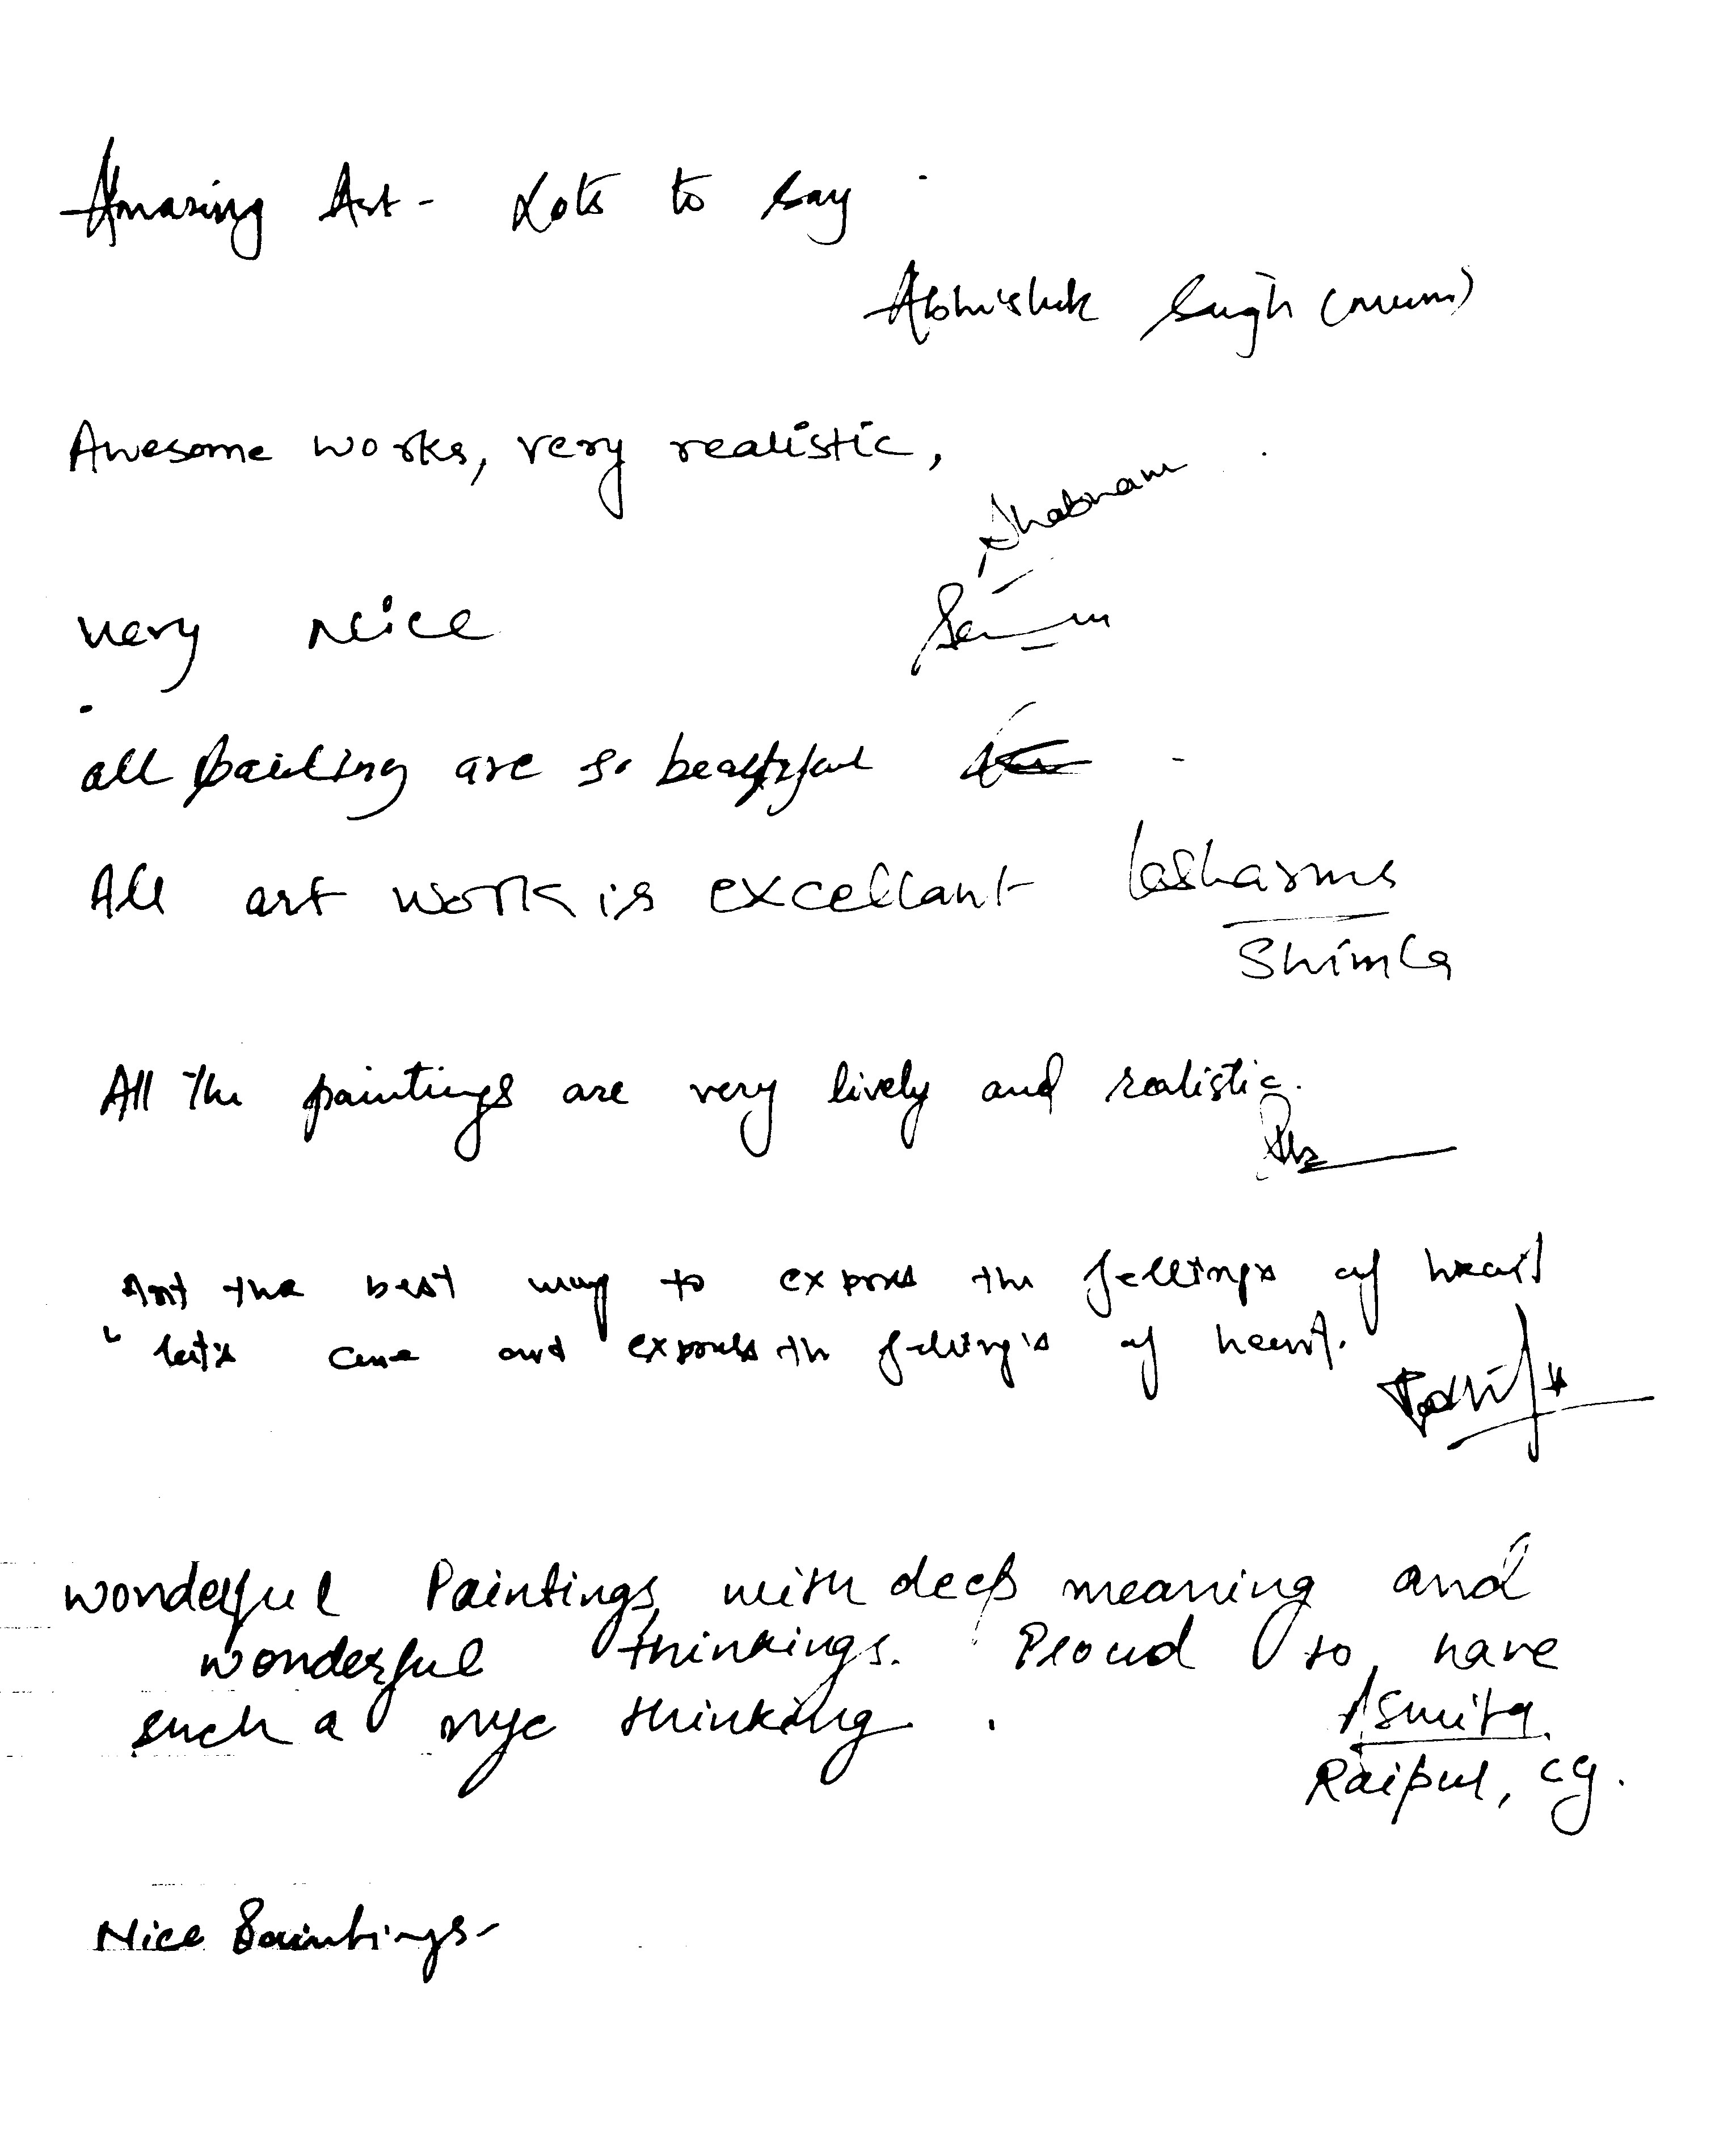 Amazing Art - Lots to say
Abhishek Singh (mum)
Awesome works, very realistic,
Shabnam
very Nice
all painting are so beautiful
All art work is excellant
Shimla
All The paintings are very lively and realistic.
Art the best way to express the fellings of heart
" let's come and express the fellings of heart.
wonderful Paintings with deep meaning and
wonderful thinkings. Proud to have
such a nyc thinking.
Asmita.
Raipur, CG.
Nice Paintings-